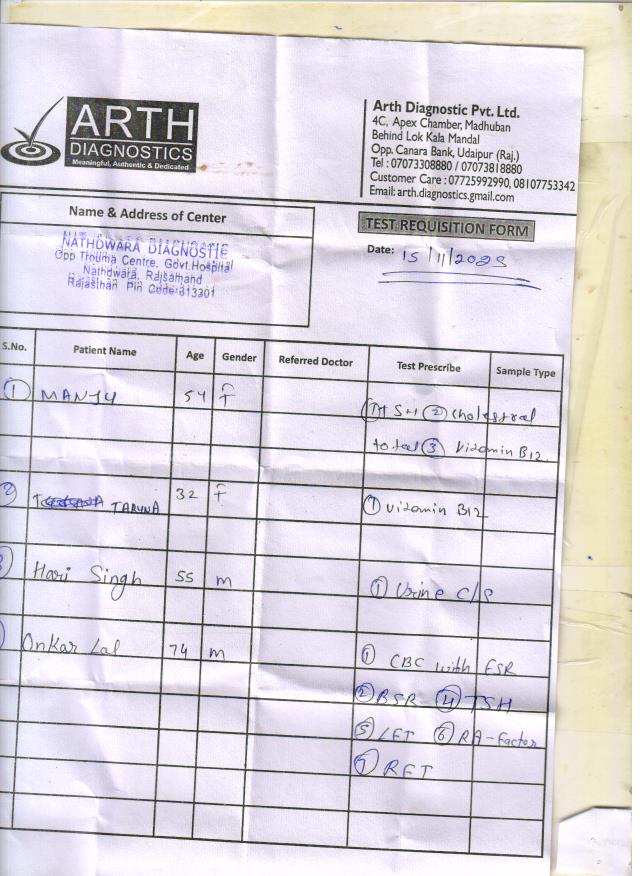 ARTH
DIAGNOSTICS
Meaningful, Authentic & Dedicated
Arth Diagnostic Pvt. Ltd.
4C, Apex Chamber, Madhuban
Behind Lok Kala Mandal
Opp. Canara Bank, Udaipur (Raj.)
Tel : 07073308880 / 07073818880
Customer Care : 07725992990, 08107753342
Email: arth.diagnostics.gmail.com
Name & Address of Center
NATHDWARA DIAGNOSTIC
Opp Trouma Centre, Govt.Hospital
Nathdwara, Rajsamand
Rajasthan Pin Code-313301
TEST REQUISITION FORM
Date: 15/11/2023
S.No. Patient Name Age Gender Referred Doctor Test Prescribe Sample Type
1 MANJU 54 F 1 TSH 2 Cholestral
total 3 Vitamin B12
2 TARUNA 32 F 1 Vitamin B12
3 Hari Singh 55 m 1 Urine C/S
Onkar Lal 74 m 1 CBC with ESR
2 BSR 4 TSH
5 LFT 6 RA-Factor
7 RFT